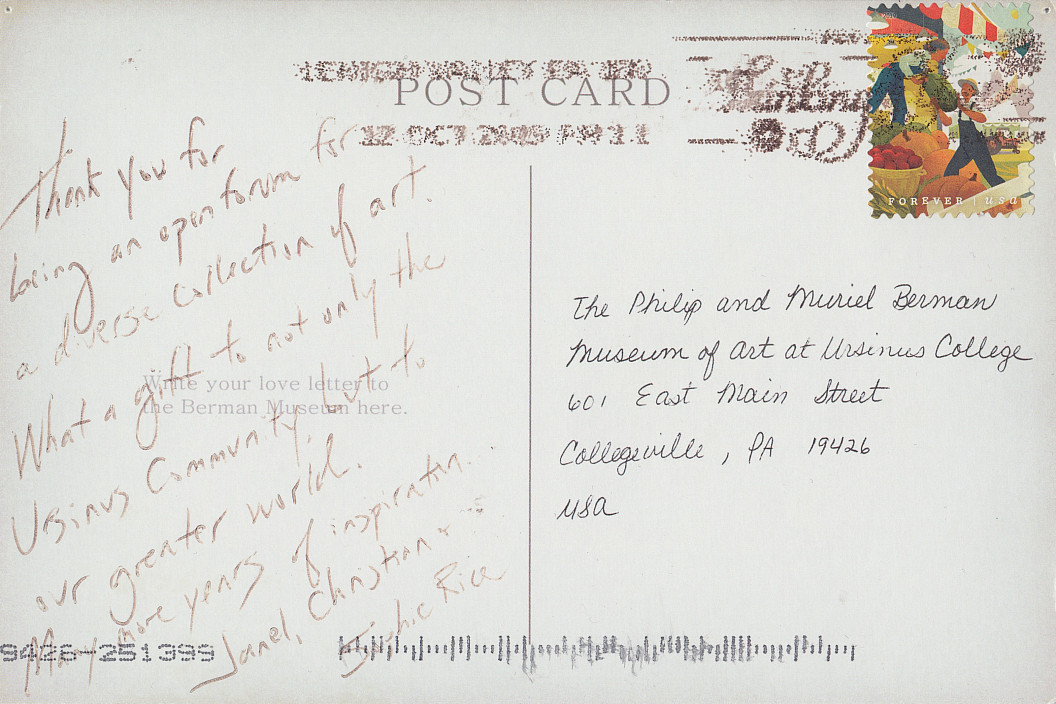 LEHIGH VALLEY PA
POST CARD
12 OCT PM
FOREVER | USA
Thank you for
being an open forum for
a diverse collection of art.
What a gift to not only the
Ursinus Community, but to
our greater world.
Many more years of inspiration...
Janel, Christian &
Rice
Write your love letter to
the Berman Museum here.
The Philip and Muriel Berman
Museum of Art at Ursinus College
601 East Main Street
Collegeville, PA 19426
USA
9426-251399